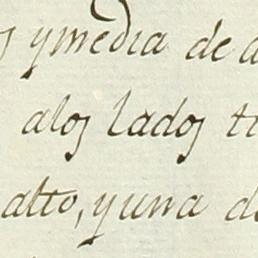 s ymedia de a
alos lados ti
alto, yuna de